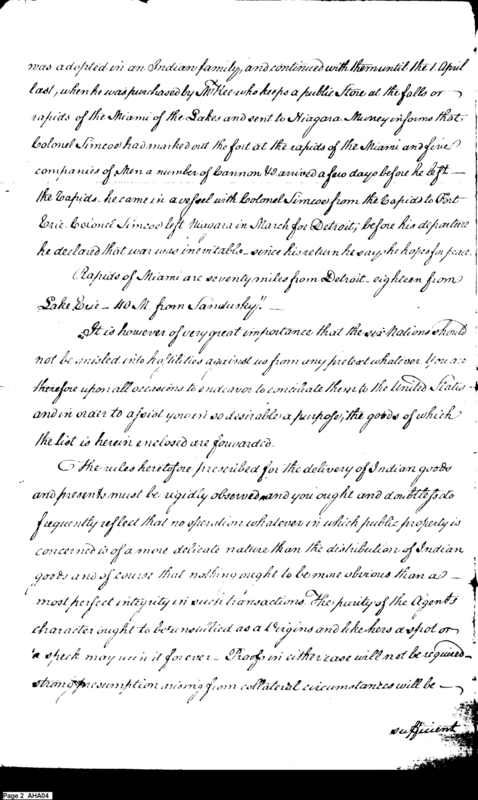 was adopted in an Indian family, and continued with them until the 1 April
last, when he was purchased by McKee who keeps a public Store at the falls or
rapids of the Miami of the Lakes and sent to Niagara. Munsey informs that
Colonel Simcoe had marked out the fort at the rapids of the Miami and five
companies of Men a number of Cannon &c arrived a few days before he left —
the Rapids. he came in a vessel with Colonel Simcoe from the Rapids to Fort
Erie. Colonel Simcoe left Niagara in March for Detroit; before his departure
he declared that war was inevitable – since his return he says he hopes for peace.
(Rapids of Miami are seventy miles from Detroit – eighteen from
Lake Erie – 40 M. from Sandusky." —
It is however of very great importance that the six Nations should
not be misled into hostilities against us from any pretext whatever. You are
therefore upon all occasions to endeavor to conciliate them to the United States
and in order to assist you in so desirable a purpose, the goods of which
the list is herein enclosed are forwarded.
The rules heretofore prescribed for the delivery of Indian goods
and presents must be rigidly observed and you ought and doubtless do
frequently reflect that no operation whatever in which public property is
concerned is of a more delicate nature than the distribution of Indian
goods and of course that nothing ought to be more obvious than a —
most perfect integrity in such transactions. The purity of the Agents
character ought to be unsullied as a Virgins and like hers a spot or
a speck may ruin it forever – Proofs in either case will not be required –
strong presumption arising from collateral circumstances will be —
sufficient
Page 2 AHA04